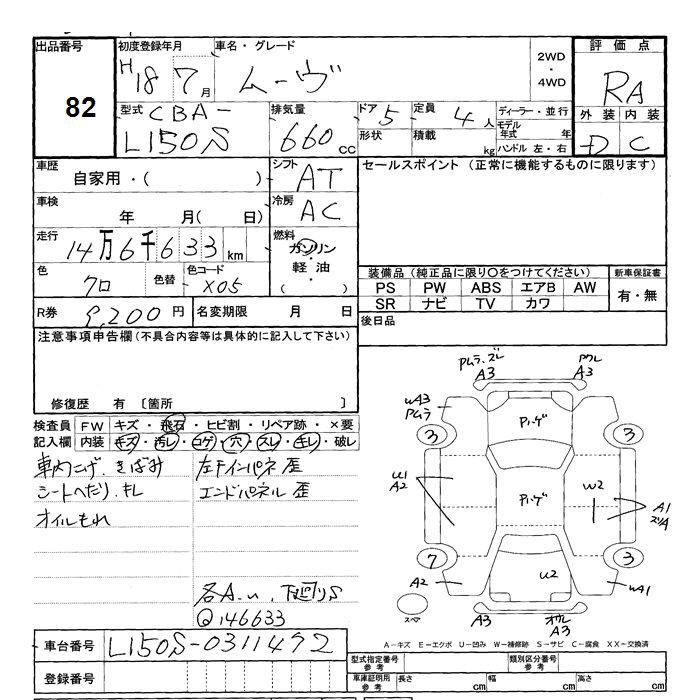 出品番号 初度登録年月 車名・グレード 評価点
82 H18 7月 ムーヴ 2WD ・ 4WD RA
型式 CBA- 排気量 ドア 5 定員 4人 ディーラー・並行 外装 内装
L150S 660cc 形状 積載 kg モデル年式 年 ハンドル 左・右 D C
車歴 自家用・( ) シフト AT セールスポイント (正常に機能するものに限ります)
車検 年 月( 日) 冷房 AC
走行 14万6千633km 燃料 ガソリン・軽油・( )
色 クロ 色替 色コード X05 装備品 (純正品に限り○をつけてください) 新車保証書
PS PW ABS エアB AW 有・無
SR ナビ TV カワ
R券 9,200円 名変期限 月 日 後日品
注意事項申告欄 (不具合内容等は具体的に記入して下さい)
修復歴 有 〔箇所
検査員記入欄 FW キズ・飛石・ヒビ割・リペア跡・×要
内装 キズ・汚レ・コゲ・穴・スレ・キレ・破レ
車内こげ、きばみ 左インパネ 歪
シートへたり、キレ エンドパネル 歪
オイルもれ
各A.U、下廻りS
Q146633
Pムラ.ズレ A3 PウレA3
WA3 Pムラ
Pハゲ
3 3
U1 A2 W2 A1 ズリA
Pハゲ
7 3
A2 U2 WA1
スペア A3 オウレ A3
A-キズ E-エクボ U-凹み W-補修跡 S-サビ C-腐食 XX-交換済
車台番号 L150S-0311492
登録番号
型式指定番号 参考 類別区分番号 参考
車庫証明用 参考 長さ cm 幅 cm 高さ cm